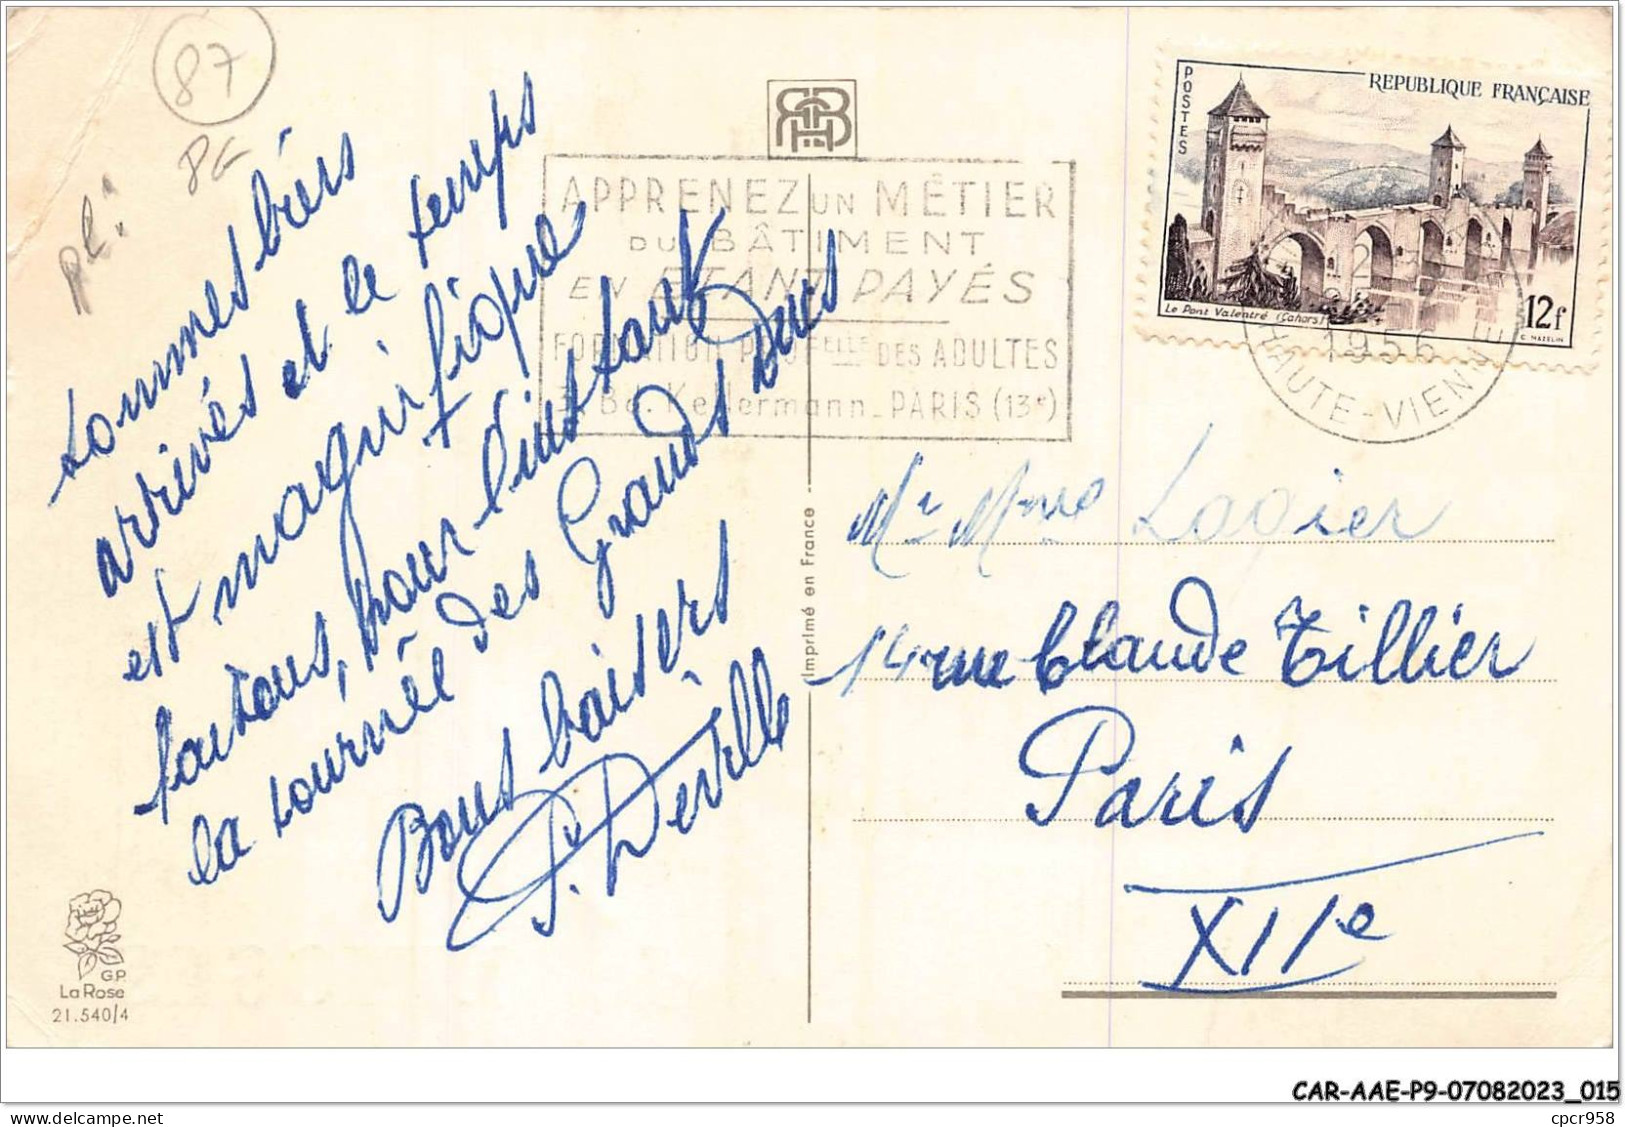 87
PG
pl:
sommes biens
arrivés et le temps
est magnifique
faisons, pour l'instant
la tournée des Grands Ducs
Bons baisers
P. Deville
GP
La Rose
21.540/4
APPRENEZ UN MÉTIER
DU BÂTIMENT
EN ÉTANT PAYÉS
FORMATION PROFELLE DES ADULTES
Bd. Kellermann - PARIS (13e)
Imprimé en France
POSTES
REPUBLIQUE FRANÇAISE
Le Pont Valentré (Cahors)
12f
C. HAZELIN
1956
HAUTE-VIENNE
Mr Mme Lagier
14 rue Claude Tillier
Paris
XIIe
CAR-AAE-P9-07082023_015
cpcr958